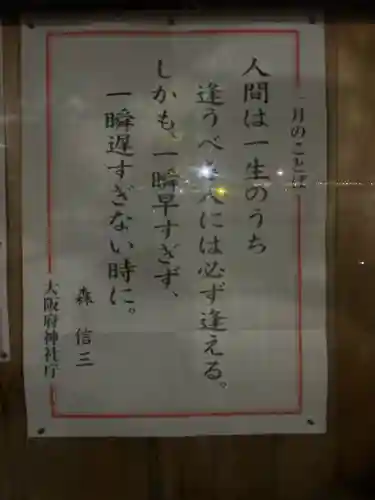 一月のことば
人間は一生のうち
逢うべき人には必ず逢える。
しかも、一瞬早すぎず、
一瞬遅すぎない時に。
森 信三
大阪府神社庁